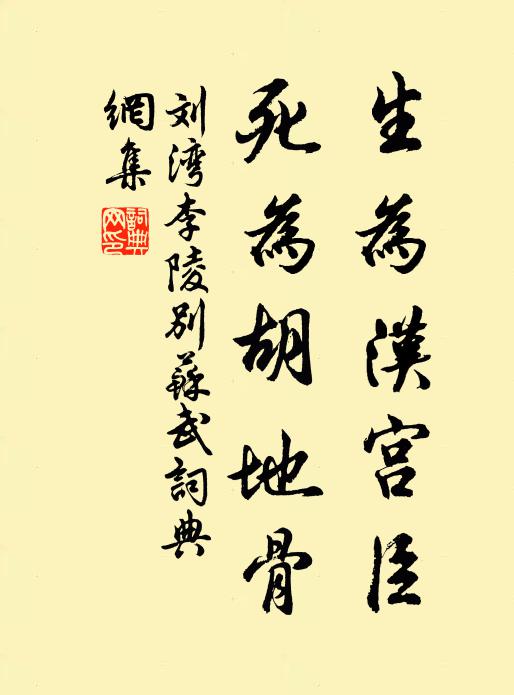 生為漢宮臣
死為胡地骨
刘湾李陵别蘇武詞典
網集
詞典
网印